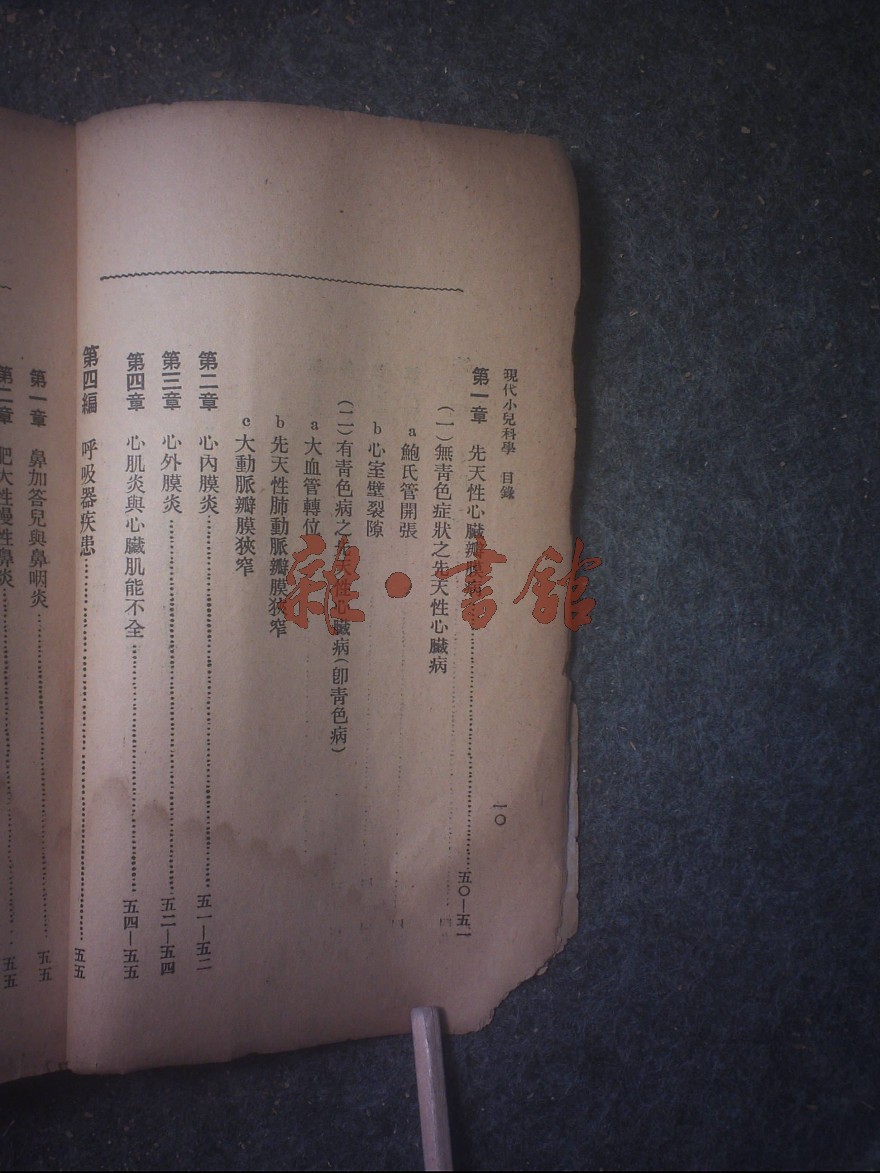 現代小兒科學 目錄
一〇
第一章 先天性心臟瓣膜病 五〇—五一
(一)無青色症狀之先天性心臟病
a 鮑氏管開張
b 心室壁裂隙
(二)有青色病之先天性心臟病(卽青色病)
a 大血管轉位
b 先天性肺動脈瓣膜狹窄
c 大動脈瓣膜狹窄
第二章 心內膜炎 五一—五二
第三章 心外膜炎 五二—五四
第四章 心肌炎與心臟肌能不全 五四—五五
第四編 呼吸器疾患 五五
第一章 鼻加答兒與鼻咽炎 五五
第二章 肥大性慢性鼻炎 五五
雜·書館